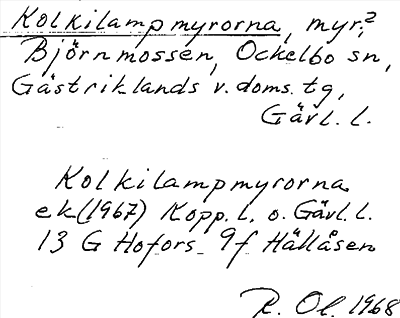 Kolkilampmyrorna, myr,²
Björnmossen, Ockelbo sn,
Gästriklands v. doms. tg,
Gävl. l.
Kolkilampmyrorna
ek (1967) Kopp. l. o. Gävl. l.
13 G Hofors 9f Hällåsen
R. Ol. 1968